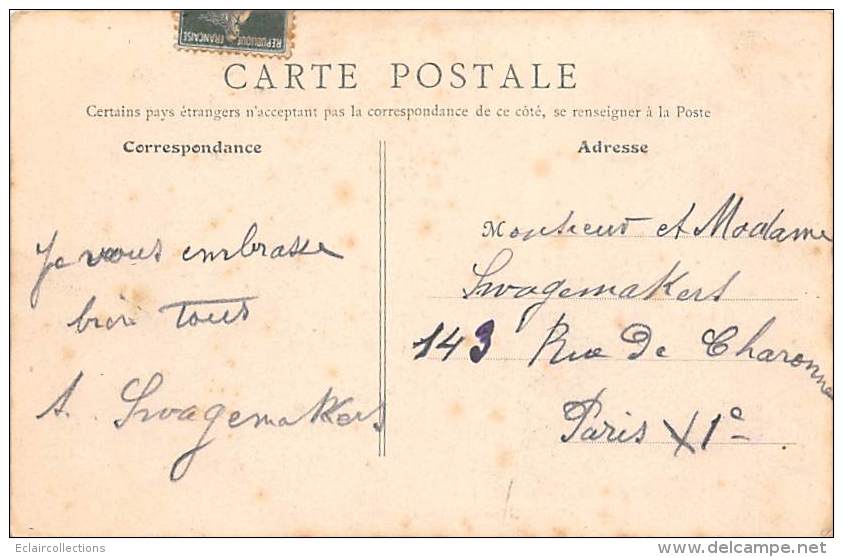 REPUBLIQUE FRANÇAISE
CARTE POSTALE
Certains pays étrangers n'acceptant pas la correspondance de ce côté, se renseigner à la Poste
Correspondance
Je vous embrasse
bien Tous
A. Swagemakers
Adresse
Monsieur et Madame
Swagemakers
143 Rue de Charonne
Paris XIe
Eclaircollections
www.delcampe.net